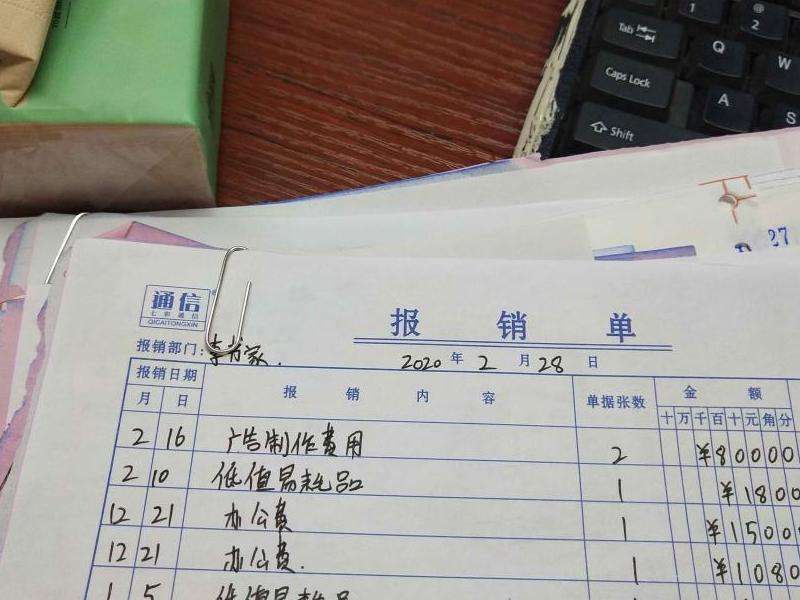 1
@
2
Tab
Q
W
Caps Lock
A
S
Shift
27
通信
七彩通信
QICAITONGXIN
报销单
报销部门:
2020年2月28日
报销日期 报销内容 单据张数 金额
月 日 十万千百十元角分
2 16 广告制作费用 2 ¥80000
2 10 低值易耗品 1 ¥1800
12 21 办公费 1 ¥15000
12 21 办公费. 1 ¥1080
1 5 低值易耗品